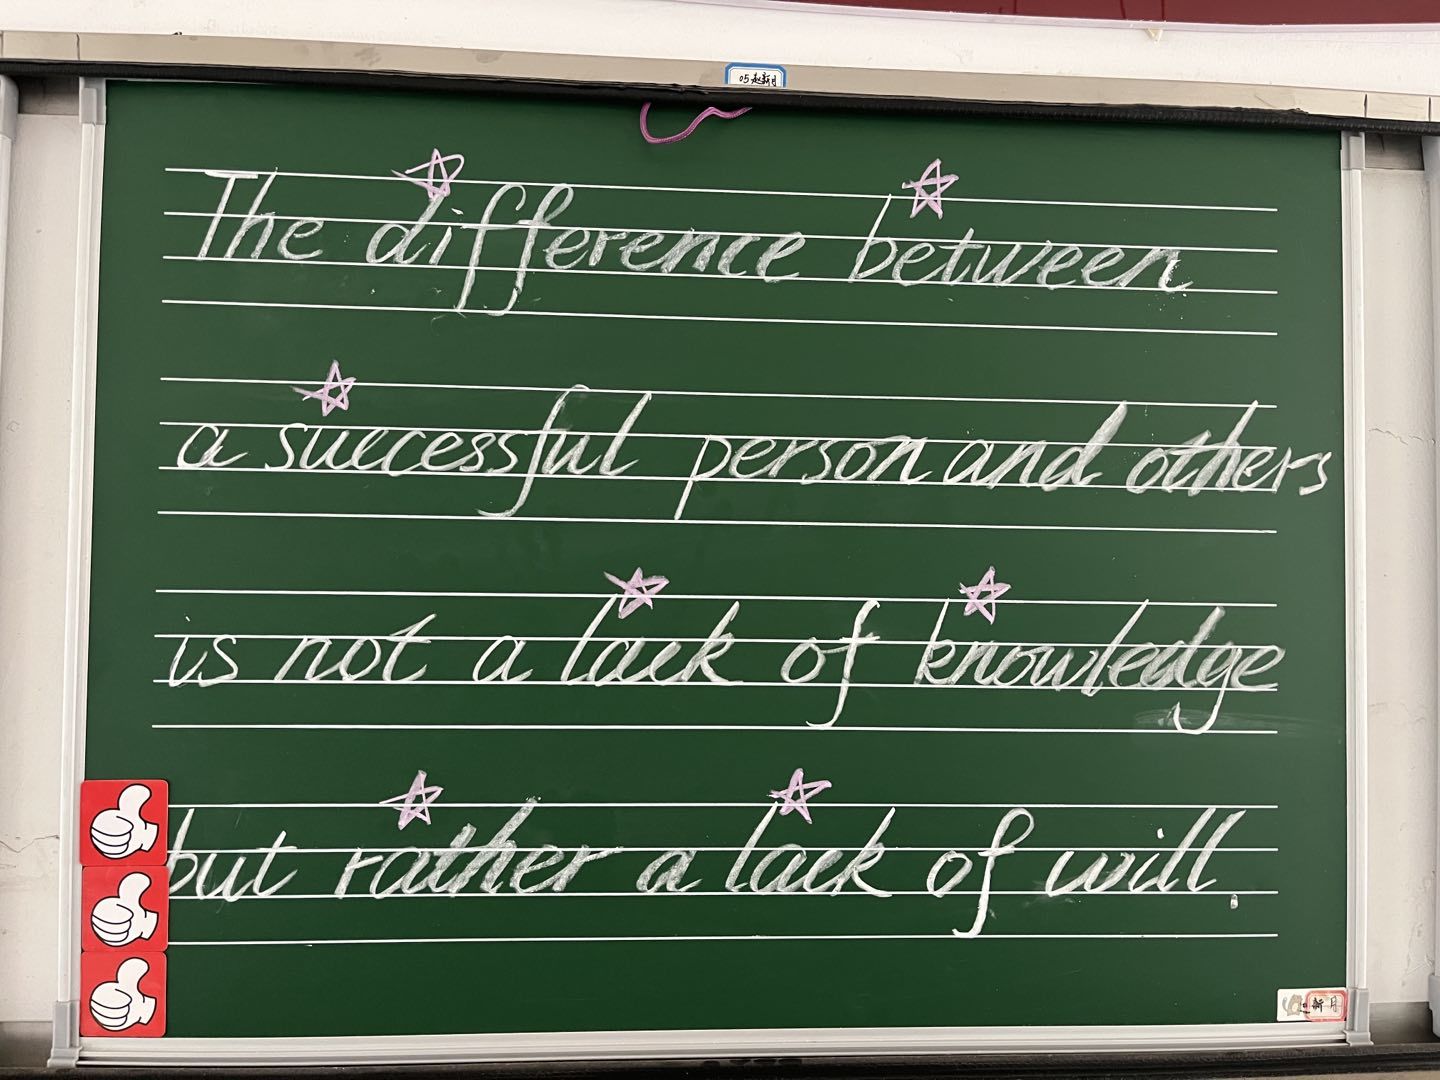 05赵新月
The difference between
a successful person and others
is not a lack of knowledge
but rather a lack of will.
新月